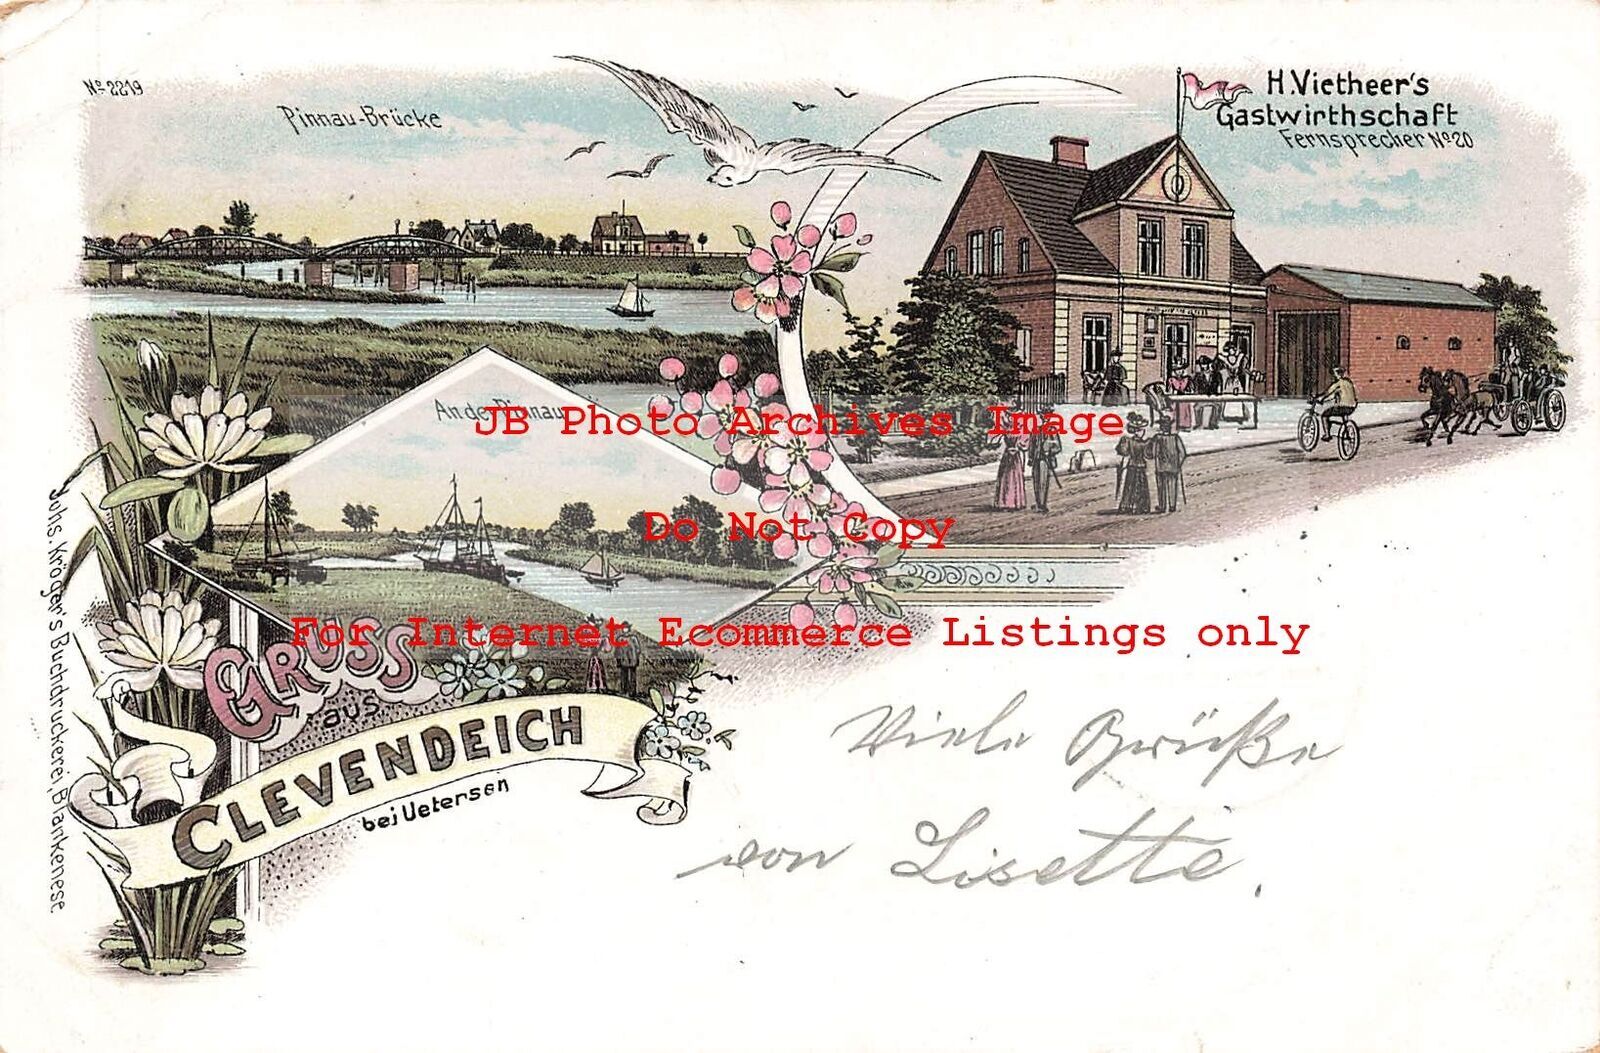 No 2219
Pinnau-Brücke
H. Vietheer's
Gastwirthschaft
Fernsprecher No 20
An der Pinnau
JB Photo Archives Image
Do Not Copy
For Internet Ecommerce Listings only
GRUSS
aus
CLEVENDEICH
bei Uetersen
Johs. Kröger's Buchdruckerei, Blankenese.
Viele Grüße
von Lisette.